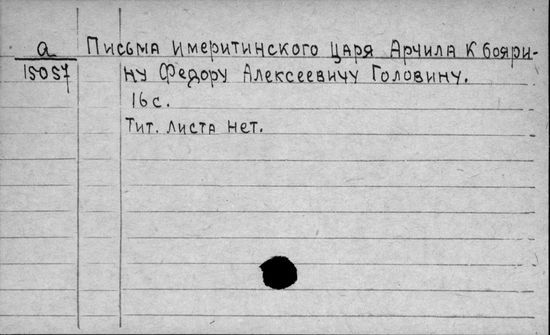 а Письма имеритинского царя Арчила к бояри-
15057 ну Федору Алексеевичу Головину.
16 с.
Тит. листа нет.